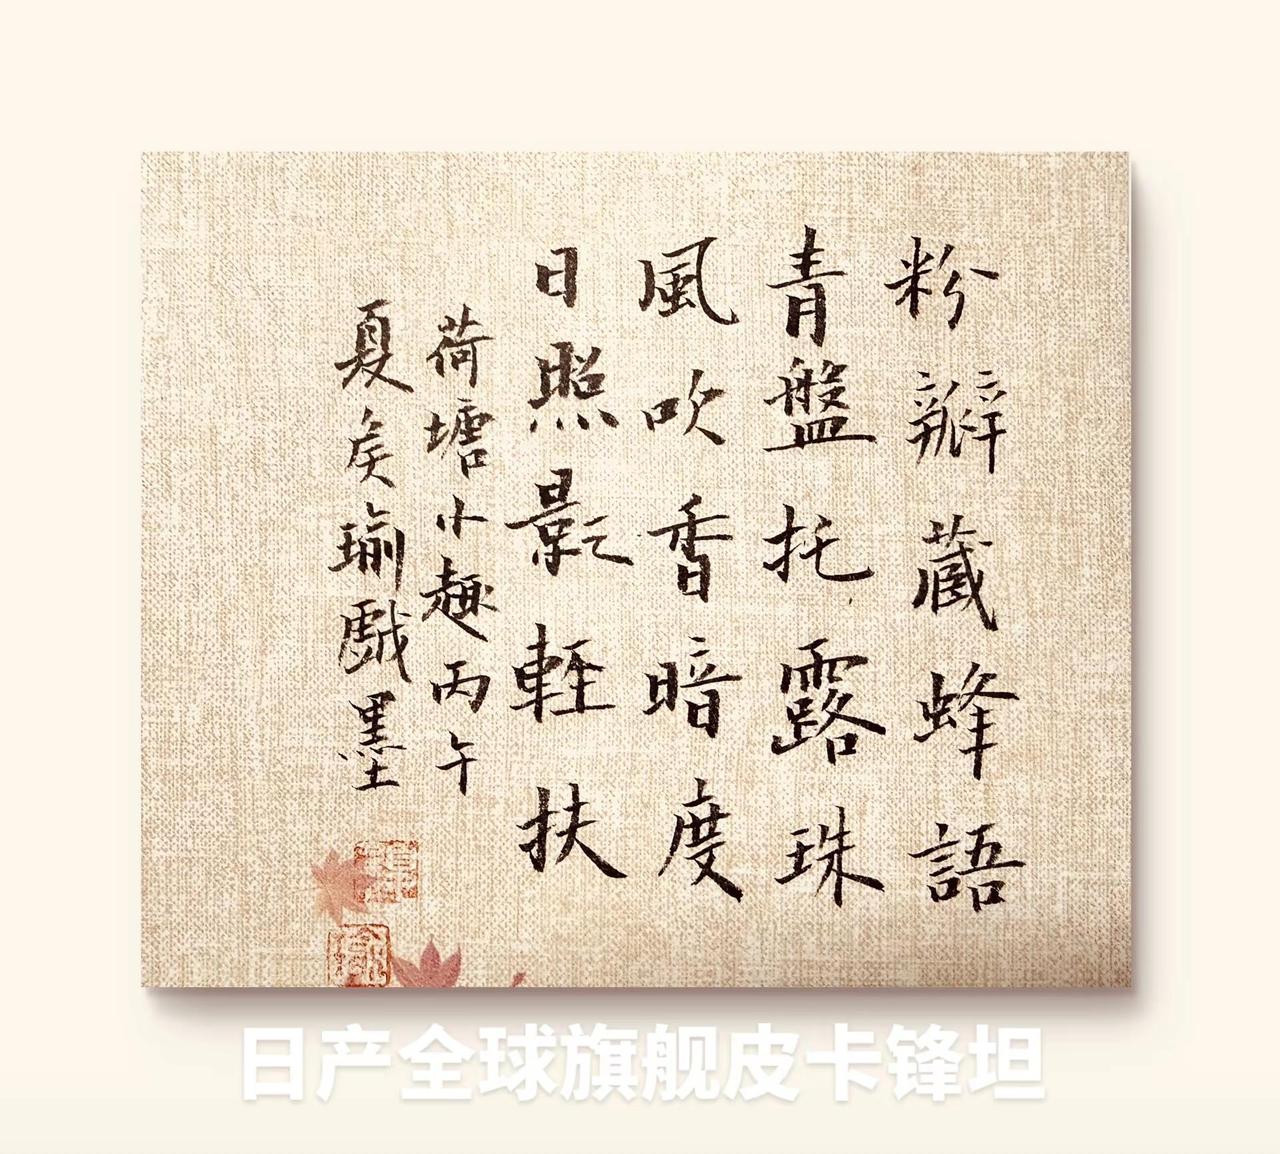 粉瓣蔵蜂語
青盤托露珠
風吹香暗度
日照影輕扶
荷塘小趣丙午
夏矦瑜戲墨
日产全球旗舰皮卡锋坦